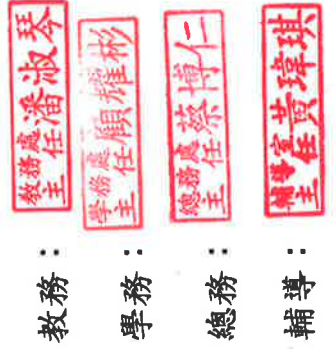 教務：教務處主任潘淑琴
學務：學務處主任顧耀彬
總務：總務處主任蔡博仁
輔導：輔導室主任黃瑋琪